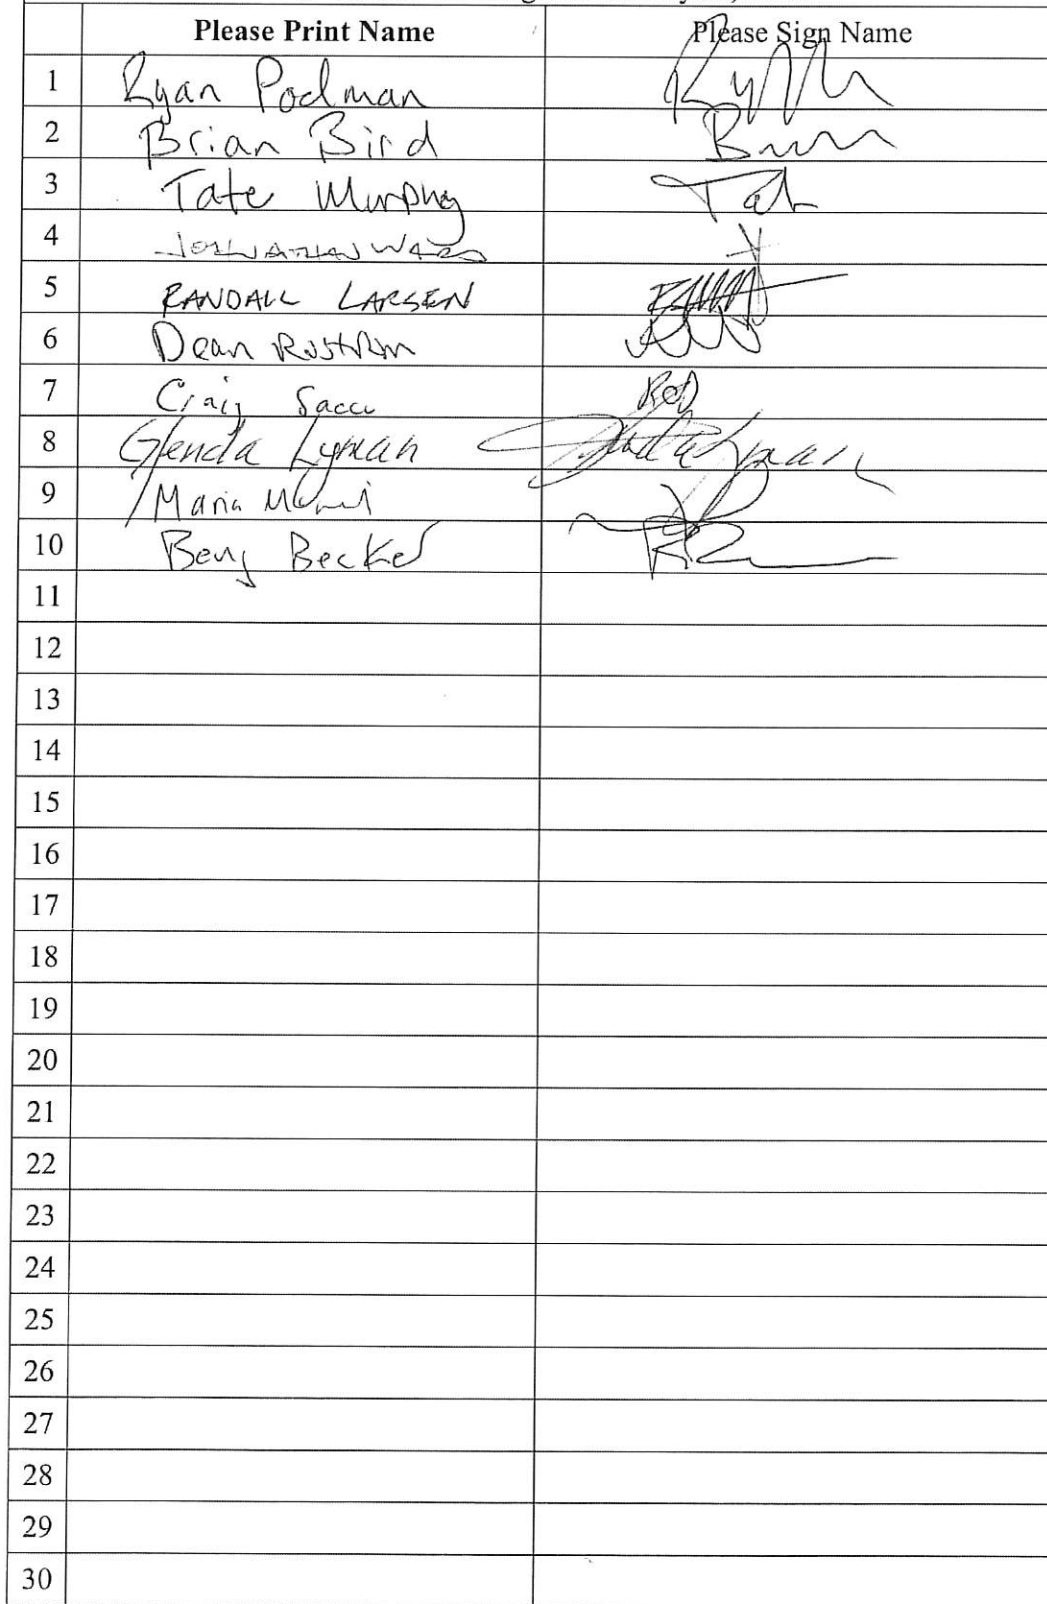 Please Print Name Please Sign Name
1 Ryan Podman
2 Brian Bird
3 Tate Murphy
4 Johnathan Ward
5 RANDALL LARSEN
6 Dean
7 Craig Sacco
8 Glenda Lyman Glenda Lyman
9 Maria
10 Benj Becker
11
12
13
14
15
16
17
18
19
20
21
22
23
24
25
26
27
28
29
30